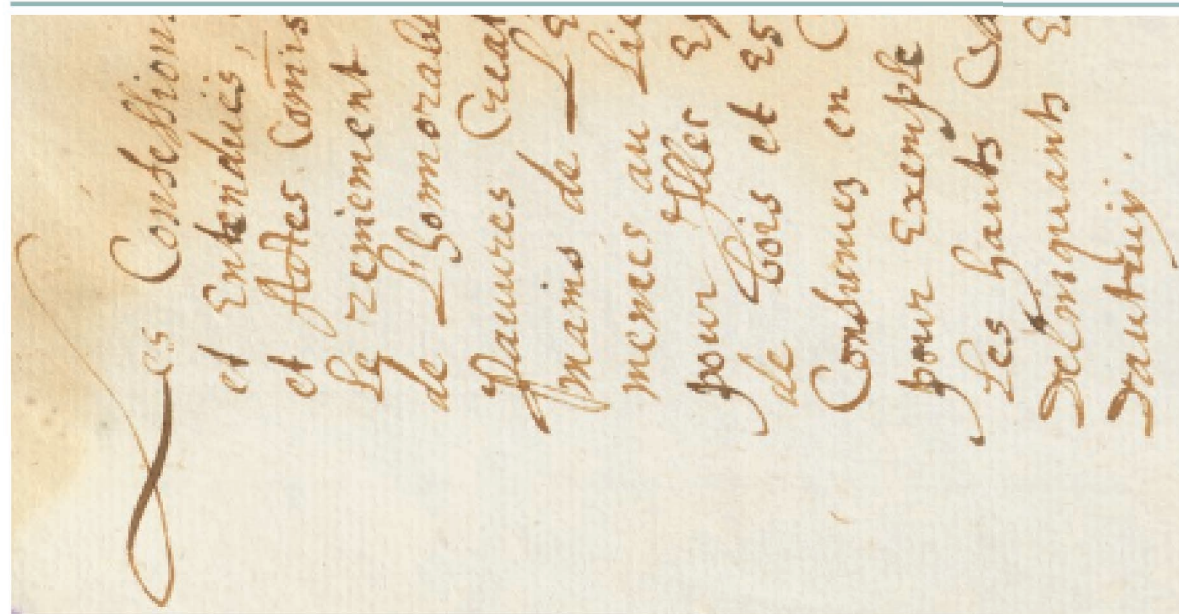 Les Confession
et Entendues,
et Actes Comis
Le reniement
de L'honnorable
Pauures Creat
mains de L'E
menes au Lie
pour Iller E
de bois et Es
Consumez en C
pour Exemple
Les hauts C
Delinquants E
Dautruy.